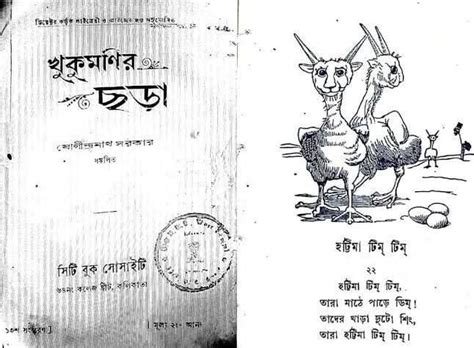 খুকুমণির
ছড়া
যোগীন্দ্রনাথ সরকার
সঙ্কলিত
সিটি বুক সোসাইটি
৬৪নং কলেজ স্ট্রীট, কলিকাতা
১৩শ সংস্করণ
মূল্য ২৲ আনা
হট্টিমা টিম্ টিম্
২২
হট্টিমা টিম্ টিম্,
তারা মাঠে পাড়ে ডিম্!
তাদের খাড়া দুটো শিং,
তারা হট্টিমা টিম্ টিম্।